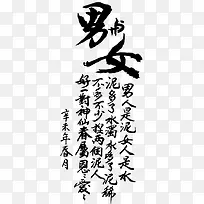 男与女
男人是泥女人是水
泥多了水濁水多了泥稀
不多不少捏兩個泥人
好一對神仙眷屬恩々愛々
辛未年春月